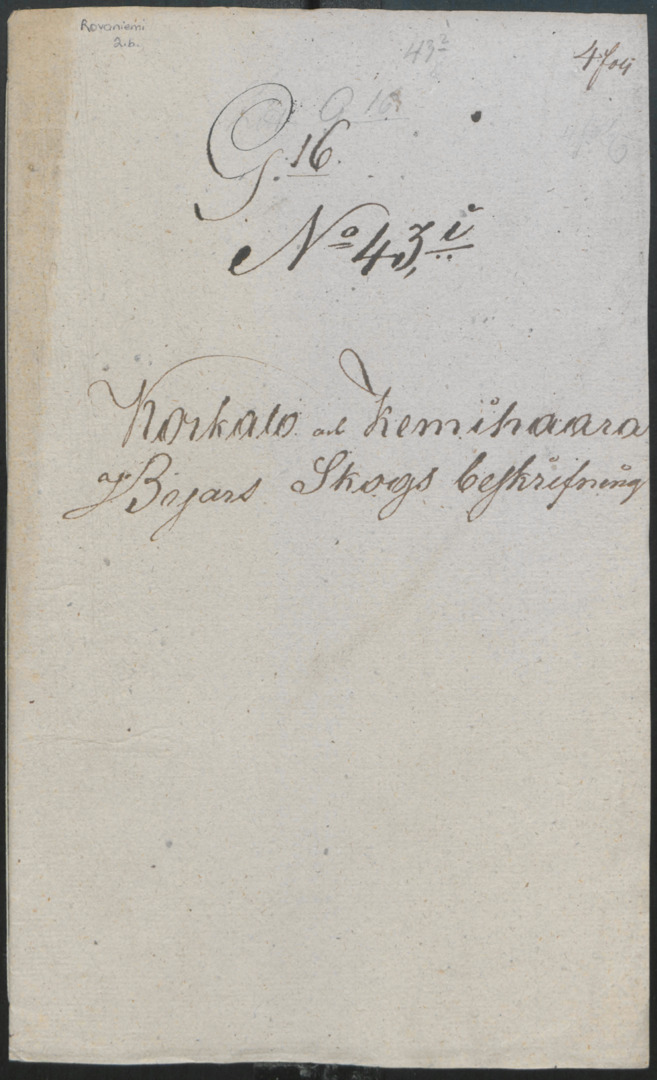 Rovaniemi
2.b.
43 2
4 fol
G 16
G. 16.
No 43, i
Korkalo och Kemihaara
Byars Skogs beskrifning